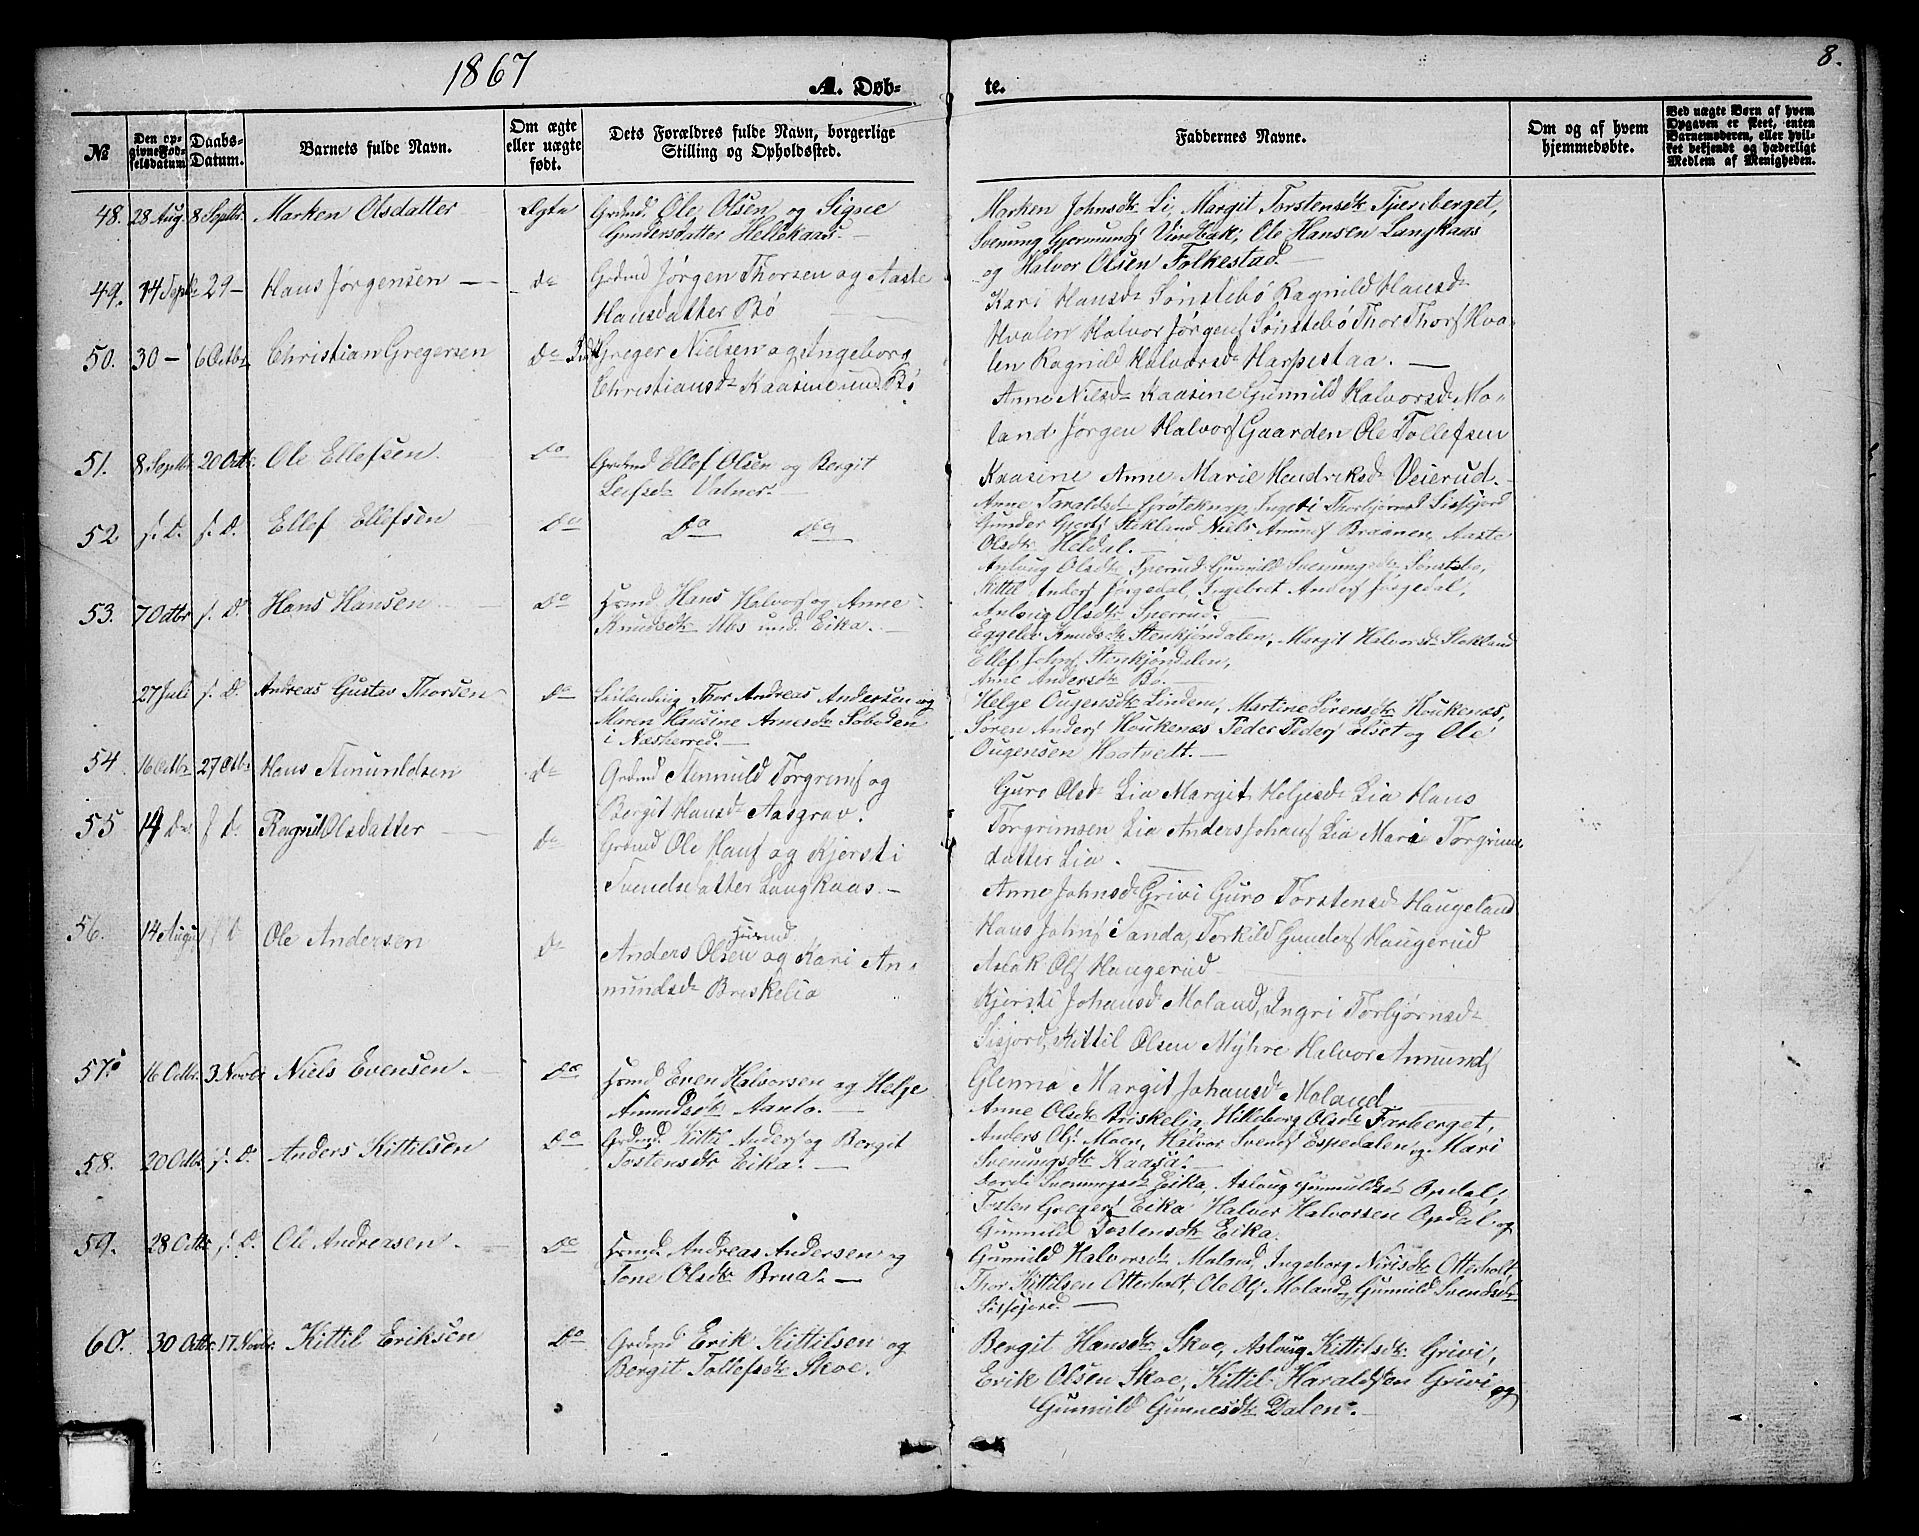 1867
A. Døb-
te.
8.
№
Den op-
givne Fød-
selsdatum.
Daabs-
Datum.
Barnets fulde Navn.
Om ægte
eller uægte
født.
Dets Forældres fulde Navn, borgerlige
Stilling og Opholdssted.
Faddernes Navne.
Om og af hvem
hjemmedøbte.
Ved uægte Børn af hvem
Opgaven er skeet, enten
Barnemoderen, eller hvil-
ket bekjendt og hæderligt
Medlem af Menigheden.
48. 28 Aug. 8 Septbr. Marken Olsdatter Ægte Grdmd. Ole Olsen og Signe
Gundersdatter Hellekaas.
Marken Johnsdtr Li, Margit Torstensdtr
Svenung Gjermunds Vindbæk, Ole Hansen Langkaas
og Halvor Olsen Folkestad.
49. 14 Septbr 29 Hans Jørgensen do Grdmd Jørgen Thorsen og Aaste
Hansdatter Bø
Kari Hansd Sønstebø Ragnild Hansd
Hvalen Halvor Jørgens Sønstebø Thor Thors Hva-
len Ragnild Halvorsd Harpestaa.
50. 30 6 Octbr Christian Gregersen Do Greger Nielsen og Ingeborg
Christiansd Kaasine und. Bø
Anne Nielsd Kaasine Gunnild Halvorsd Mo-
land Jørgen Halvors Gaarden Ole Tollefsen
Kaasine Anne Marie Hendriksd Veierud.
51. 8 Septbr 20 Octbr. Ole Ellefsen Do Grdmd Ellef Olsen og Bergit
Leifsdr Valner.
Anne Taraldsd Groteknap Ingeri Thorbjørnsd Sissjord
Gunder Gjerts Stokland Niels Amunds Braanen, Aaste
Olsdtr Heldal.
52. s. D. s. D. Ellef Ellefsen Do Do Do
Aslaug Olsdtr Sperud Gunnild Svenungsdtr Sønstebø,
Kittil Anders Jørgedal, Ingebret Anders Jørgedal,
Aslaug Olsdtr Sperrud.
53. 7 Octbr s. D. Hans Hansen Do Hsmd Hans Halvors og Anne
Knudsdtr Moes und. Eika.
Eggeler Knudsdtr Stenkjøndalen, Margit Halvorsdtr Stokland
Ellef Johns Stenkjøndalen,
Anne Andersdtr Bø.
27 Juli s. D. Andreas Gustav Thorsen Do Leilending Thor Andreas Andersen og
Maren Hansine Arnesdtr
i Næsherred.
Helge Ougensdtr Lindem, Martine Sørensdtr Houkenæs,
Søren Anders Houkenæs Peder Peders Eiset og Ole
Ougensen Haatvedt.
54 16 Octbr 27 Octbr Hans Amundsen Do Grdmd Ammuld Torgrims og
Bergit Hansd Aasgrav.
Guro Olsd Lia Margit Heljesd Lia Hans
Torgrimsen Lia Anders Johans Lia Mari Torgrims
datter Lia.
55 14 Do. s D. Ragnil Olsdatter Do Grdmd Ole Hans og Kjersti
Svendsdatter Langkaas.
Anne Johnsd Grivi Guro Torstensd Haugeland
Hans Johns Sanda, Torkild Gunders Haugerud
Aslak Ols Haugerud
56. 14 August s D Ole Andersen Do Husmd
Anders Olsen og Kari Am-
mundsd Breskelia
Kjersti Johansd Moland, Ingri Torbjørnsd
Sisjord, Kittil Olsen Myhre Halvor Ammunds
Glenna Margit Johansd Moland
57. 16 Octbr. 3 Novbr Niels Evensen. Do Hsmd Even Halvorsen og Helje
Amundsdtr Aanto.
Anne Olsdtr Briskelia, Hilleborg Olsdtr Farberget,
Anders Ols Moen, Halvor Svends Espedalen og Mari
Svenungsdtr Kaasa.
58. 20 Octbr s. D. Anders Kittilsen Do Grdmd. Kittil Anders og Bergit
Tostensdtr Eika.
Dordi Svenungsdr Eika, Aslaug Gunnuldsdr Opdal,
Tosten Gregers Eika Halvor Halvorsen Opdal og
Gunnild Tostensdtr Eika.
59. 28 Octbr s. D. Ole Andreasen Do Hsmd. Andreas Andersen og
Tone Olsdtr Brua.
Gunnild Halvorsdtr Moland, Ingeborg Nirisdtr Otterholt
Thor Kittilsen Otterholt, Ole Ols Moland og Gunnild Svendsdtr
Sissejord.
60. 30 Octbr. 17 Novbr. Kittil Eriksen Do Grdmd Erik Kittilsen og
Bergit Tollefsdtr Skoe.
Bergit Hansdtr Skoe, Aslaug Kittilsdtr Grivi,
Erik Olsen Skoe, Kittil Haraldsen Grivi og
Gunnild Gunnesdtr Dalen.